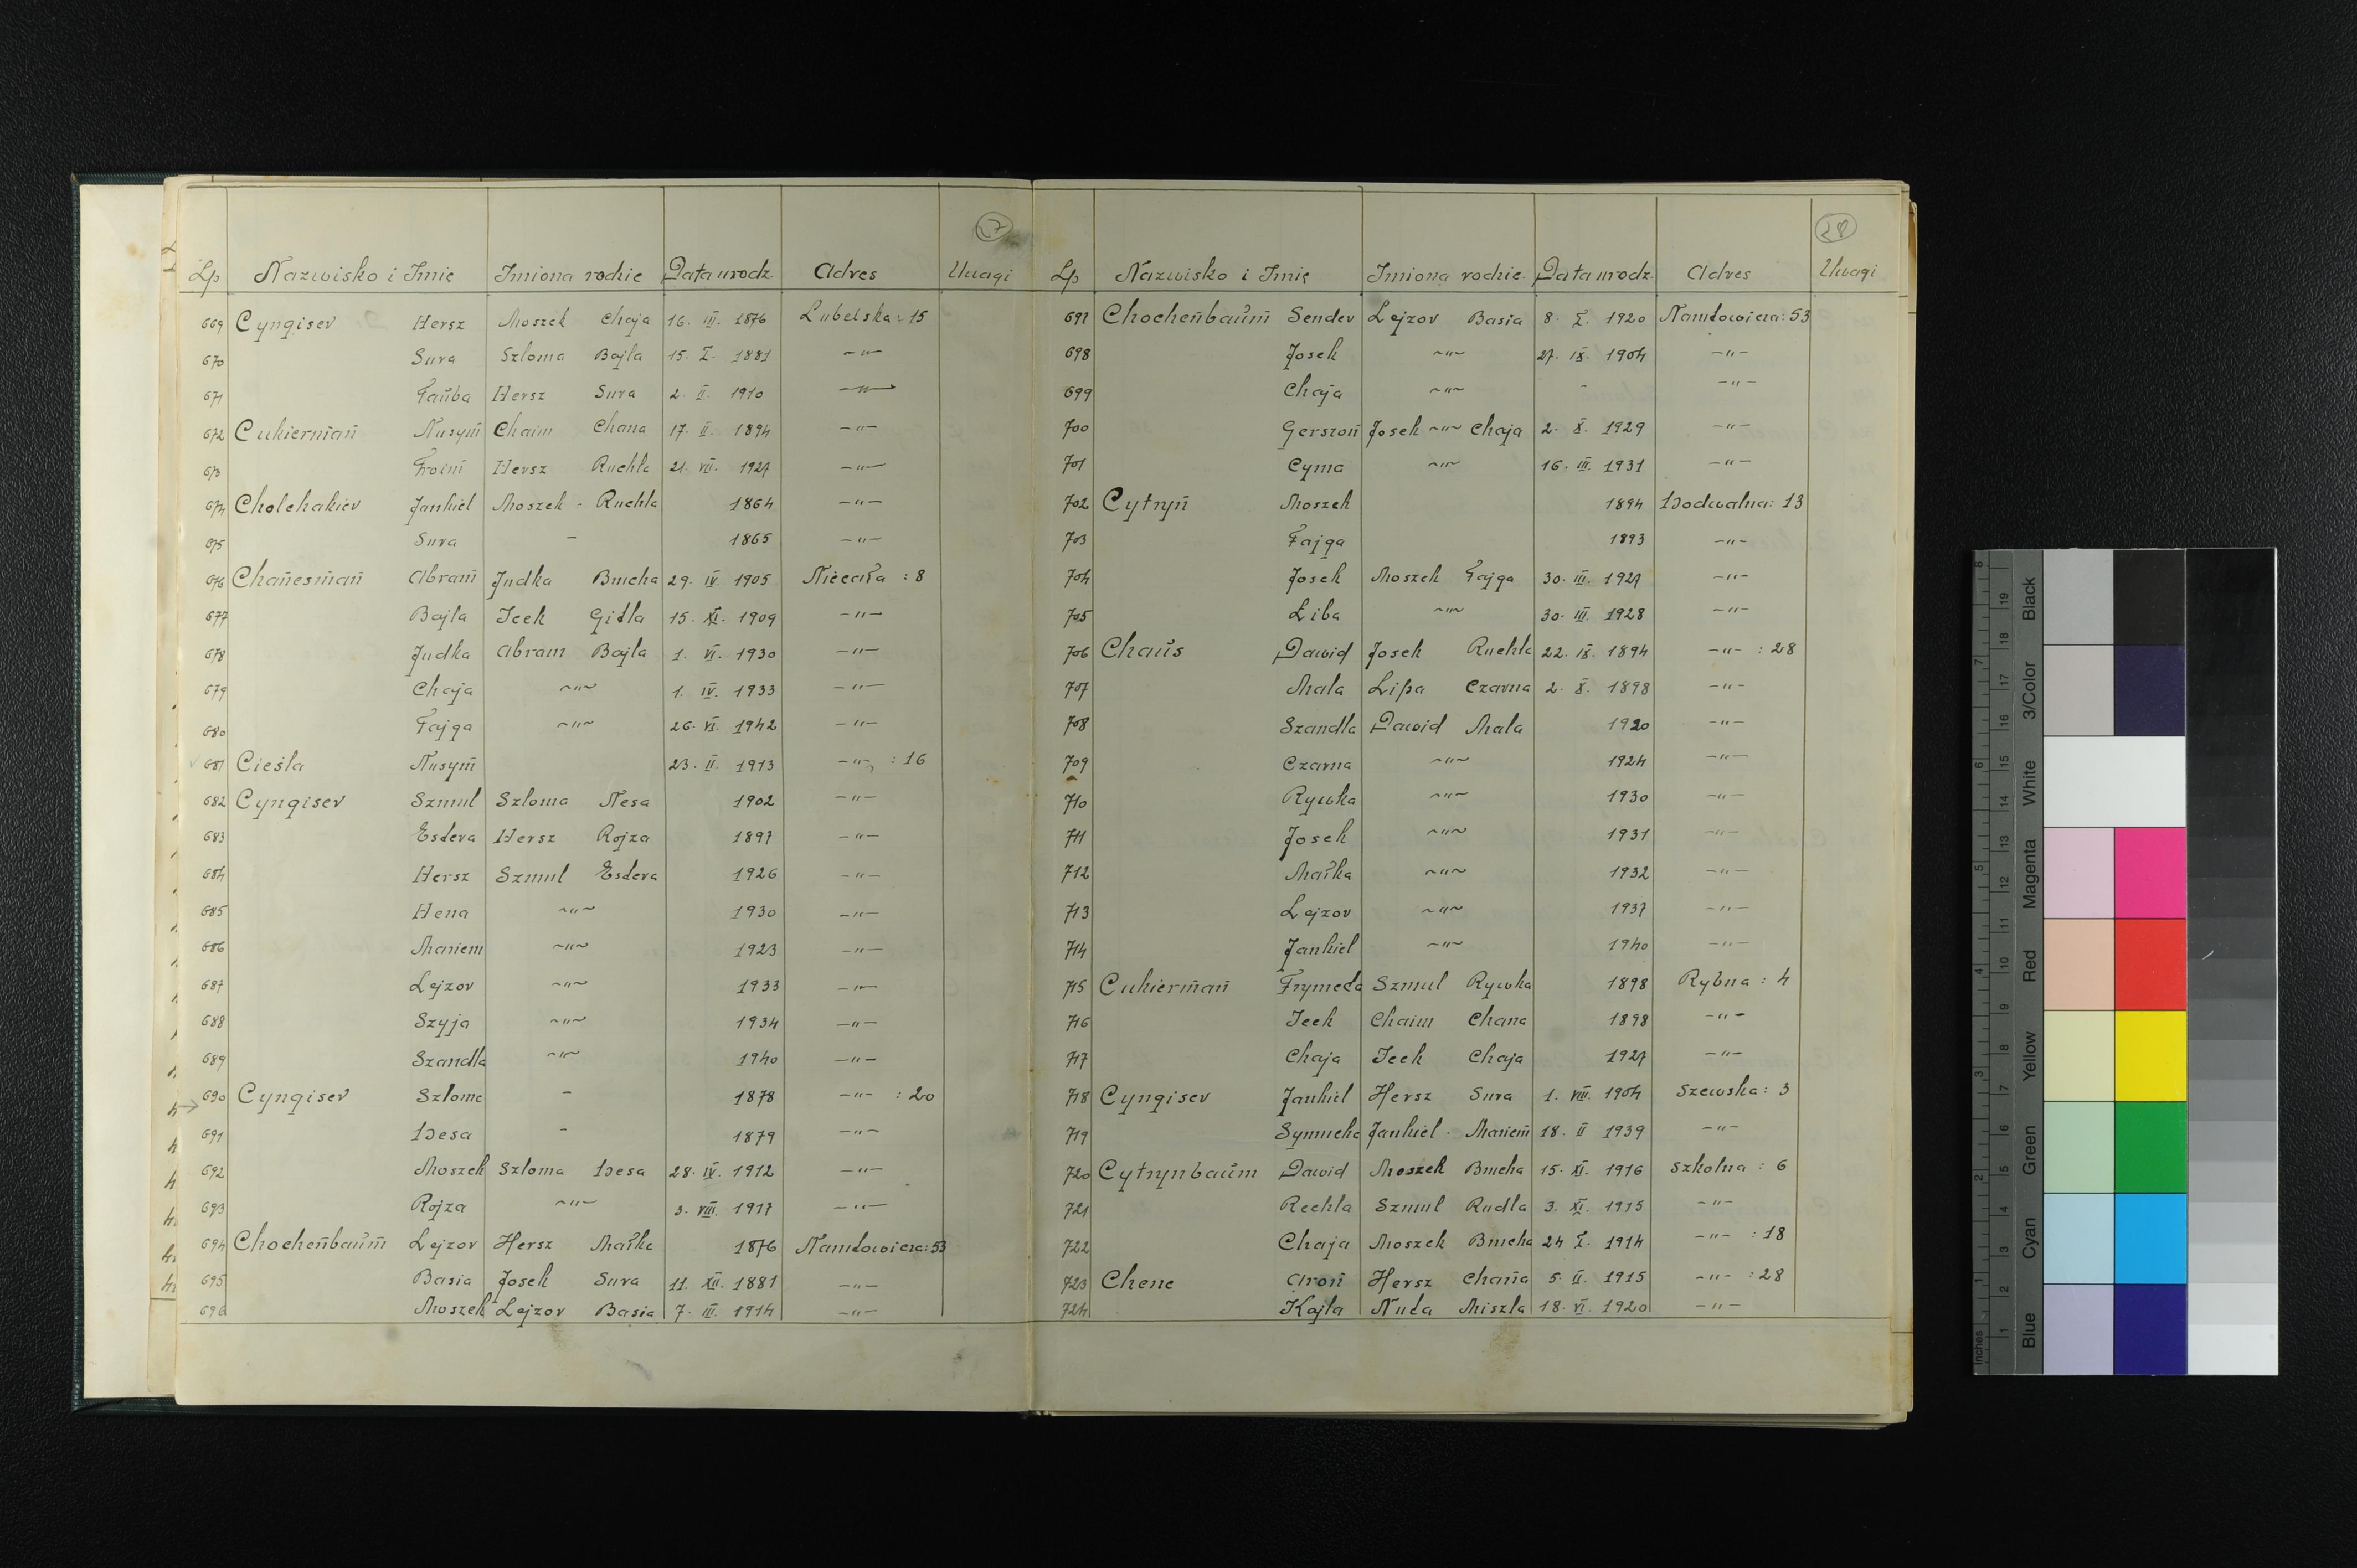 27
Lp Nazwisko i Imię Imiona rodzic Data urodz. Adres Uwagi
669 Cyngiser Hersz Moszek Chaja 16. III. 1876 Lubelska: 15
670 Sura Szloma Bajla 15. I. 1881 -"-
671 Tauba Hersz Sura 2. II. 1910 -"-
672 Cukierman Nusym Chaim Chana 17. II. 1894 -"-
673 Froim Hersz Ruchla 21. VII. 1927 -"-
674 Cholchakier Jankiel Moszek - Ruchla 1864 -"-
675 Sura - 1865 -"-
676 Chanesman Abram Judka Brucha 29. IV. 1905 Niecała : 8
677 Bajla Icek Gitla 15. XI. 1909 -"-
678 Judka Abram Bajla 1. VI. 1930 -"-
679 Chaja -"- 1. IV. 1933 -"-
680 Fajga -"- 26. VI. 1942 -"-
681 Cieśla Nusym 23. II. 1913 -"- : 16
682 Cyngiser Szmul Szloma Nesa 1902 -"-
683 Estera Hersz Rojza 1897 -"-
684 Hersz Szmul Estera 1926 -"-
685 Hena -"- 1930 -"-
686 Mariem -"- 1923 -"-
687 Lejzor -"- 1933 -"-
688 Szyja -"- 1934 -"-
689 Szandla -"- 1940 -"-
690 Cyngiser Szloma - 1878 -"- : 20
691 Pesa - 1879 -"-
692 Moszek Szloma Pesa 28. IV. 1912 -"-
693 Rojza -"- 3. VIII. 1917 -"-
694 Chochenbaum Lejzor Hersz Małka 1876 Narutowicza: 53
695 Basia Josek Sura 11. XII. 1881 -"-
696 Moszek Lejzor Basia 7. III. 1914 -"-
28
Lp Nazwisko i Imię Imiona rodzic. Data urodz. Adres Uwagi
697 Chochenbaum Sender Lejzor Basia 8. I. 1920 Narutowicza: 53
698 Josek -"- 27. IX. 1904 -"-
699 Chaja -"- - -"-
700 Gerszon Josek -"- Chaja 2. X. 1929 -"-
701 Cyma -"- 16. III. 1931 -"-
702 Cytryn Moszek 1894 Podwalna: 13
703 Fajga 1893 -"-
704 Josek Moszek Fajga 30. III. 1927 -"-
705 Liba -"- 30. III. 1928 -"-
706 Chaus Dawid Josek Ruchla 22. IX. 1894 -"- : 28
707 Mala Lipa Czarna 2. X. 1898 -"-
708 Szandla Dawid Mala 1920 -"-
709 Czarna -"- 1924 -"-
710 Rywka -"- 1930 -"-
711 Josek -"- 1931 -"-
712 Małka -"- 1932 -"-
713 Lejzor -"- 1937 -"-
714 Jankiel -"- 1940 -"-
715 Cukierman Frymeta Szmul Rywka 1898 Rybna : 4
716 Icek Chaim Chana 1898 -"-
717 Chaja Icek Chaja 1927 -"-
718 Cyngiser Jankiel Hersz Sura 1. VIII. 1904 Szewska: 3
719 Symcha Jankiel - Mariem 18. II 1939 -"-
720 Cytrynbaum Dawid Moszek Brucha 15. XI. 1916 Szkolna : 6
721 Rechla Szmul Rudla 3. XI. 1915 -"-
722 Chaja Moszek Brucha 24 I. 1914 -"- : 18
723 Chene Aron Hersz Chana 5. II. 1915 -"- : 28
724 Kajla Nuta Miszla 18. VI. 1920 -"-
Inches 1 2 3 4 5 6 7 8
1 2 3 4 5 6 7 8 9 10 11 12 13 14 15 16 17 18 19
Blue Cyan Green Yellow Red Magenta White 3/Color Black